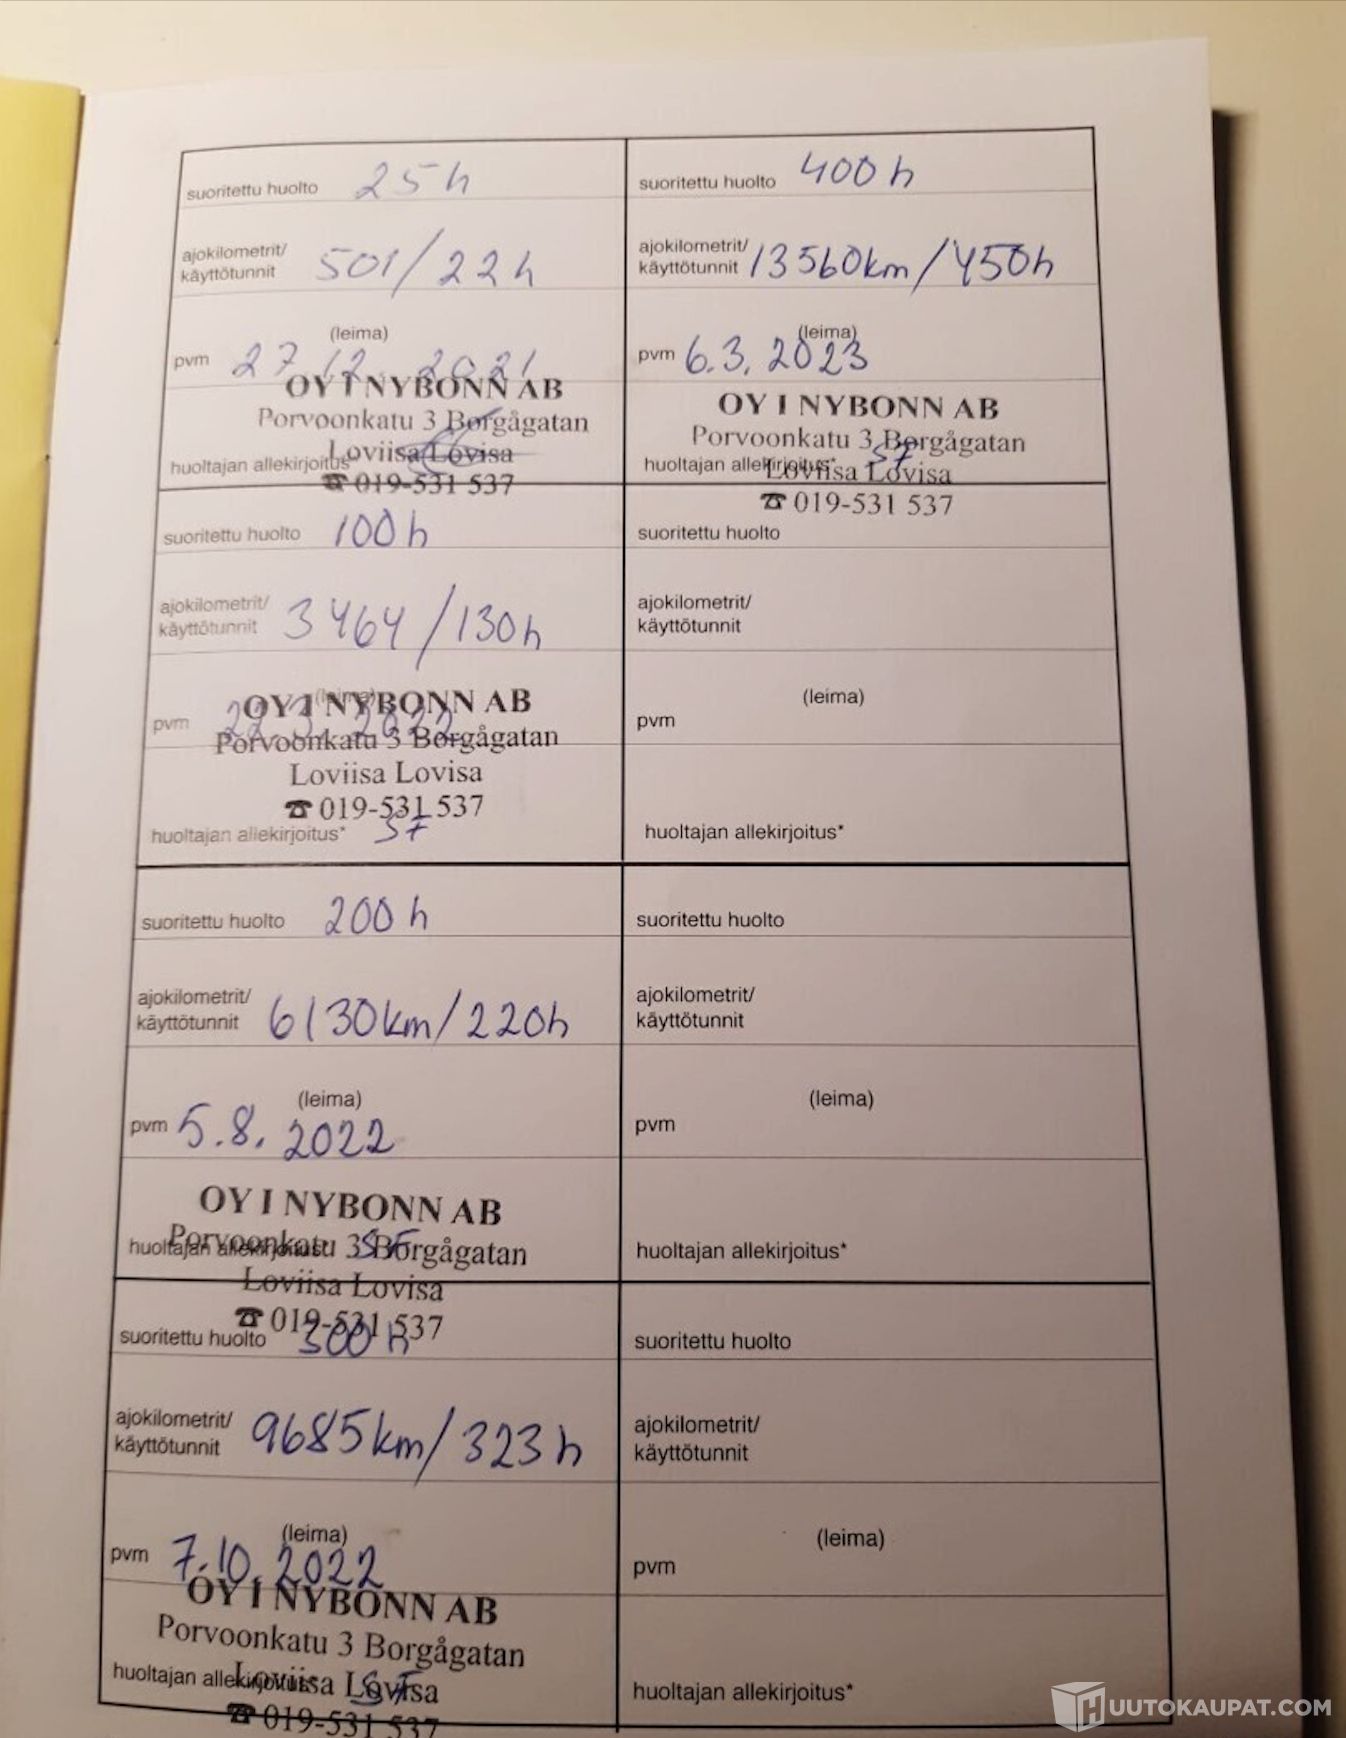 suoritettu huolto 25h
ajokilometrit/
käyttötunnit 501/22h
(leima)
pvm 27.12.2021
OY I NYBONN AB
Porvoonkatu 3 Borgågatan
Loviisa Lovisa
huoltajan allekirjoitus*
☎ 019-531 537
suoritettu huolto 100h
ajokilometrit/
käyttötunnit 3464/130h
(leima)
OY I NYBONN AB
pvm 2022
Porvoonkatu 3 Borgågatan
Loviisa Lovisa
☎ 019-531 537
huoltajan allekirjoitus*
suoritettu huolto 200h
ajokilometrit/
käyttötunnit 6130km/220h
(leima)
pvm 5.8.2022
OY I NYBONN AB
Porvoonkatu 3 Borgågatan
huoltajan allekirjoitus*
Loviisa Lovisa
☎ 019-531 537
suoritettu huolto 300h
ajokilometrit/
käyttötunnit 9685km/323h
(leima)
pvm 7.10.2022
OY I NYBONN AB
Porvoonkatu 3 Borgågatan
huoltajan allekirjoitus*
Loviisa Lovisa
☎ 019-531 537
suoritettu huolto 400h
ajokilometrit/
käyttötunnit 13560km/450h
(leima)
pvm 6.3.2023
OY I NYBONN AB
Porvoonkatu 3 Borgågatan
huoltajan allekirjoitus*
Loviisa Lovisa
☎ 019-531 537
suoritettu huolto
ajokilometrit/
käyttötunnit
(leima)
pvm
huoltajan allekirjoitus*
suoritettu huolto
ajokilometrit/
käyttötunnit
(leima)
pvm
huoltajan allekirjoitus*
suoritettu huolto
ajokilometrit/
käyttötunnit
(leima)
pvm
huoltajan allekirjoitus*
HUUTOKAUPAT.COM